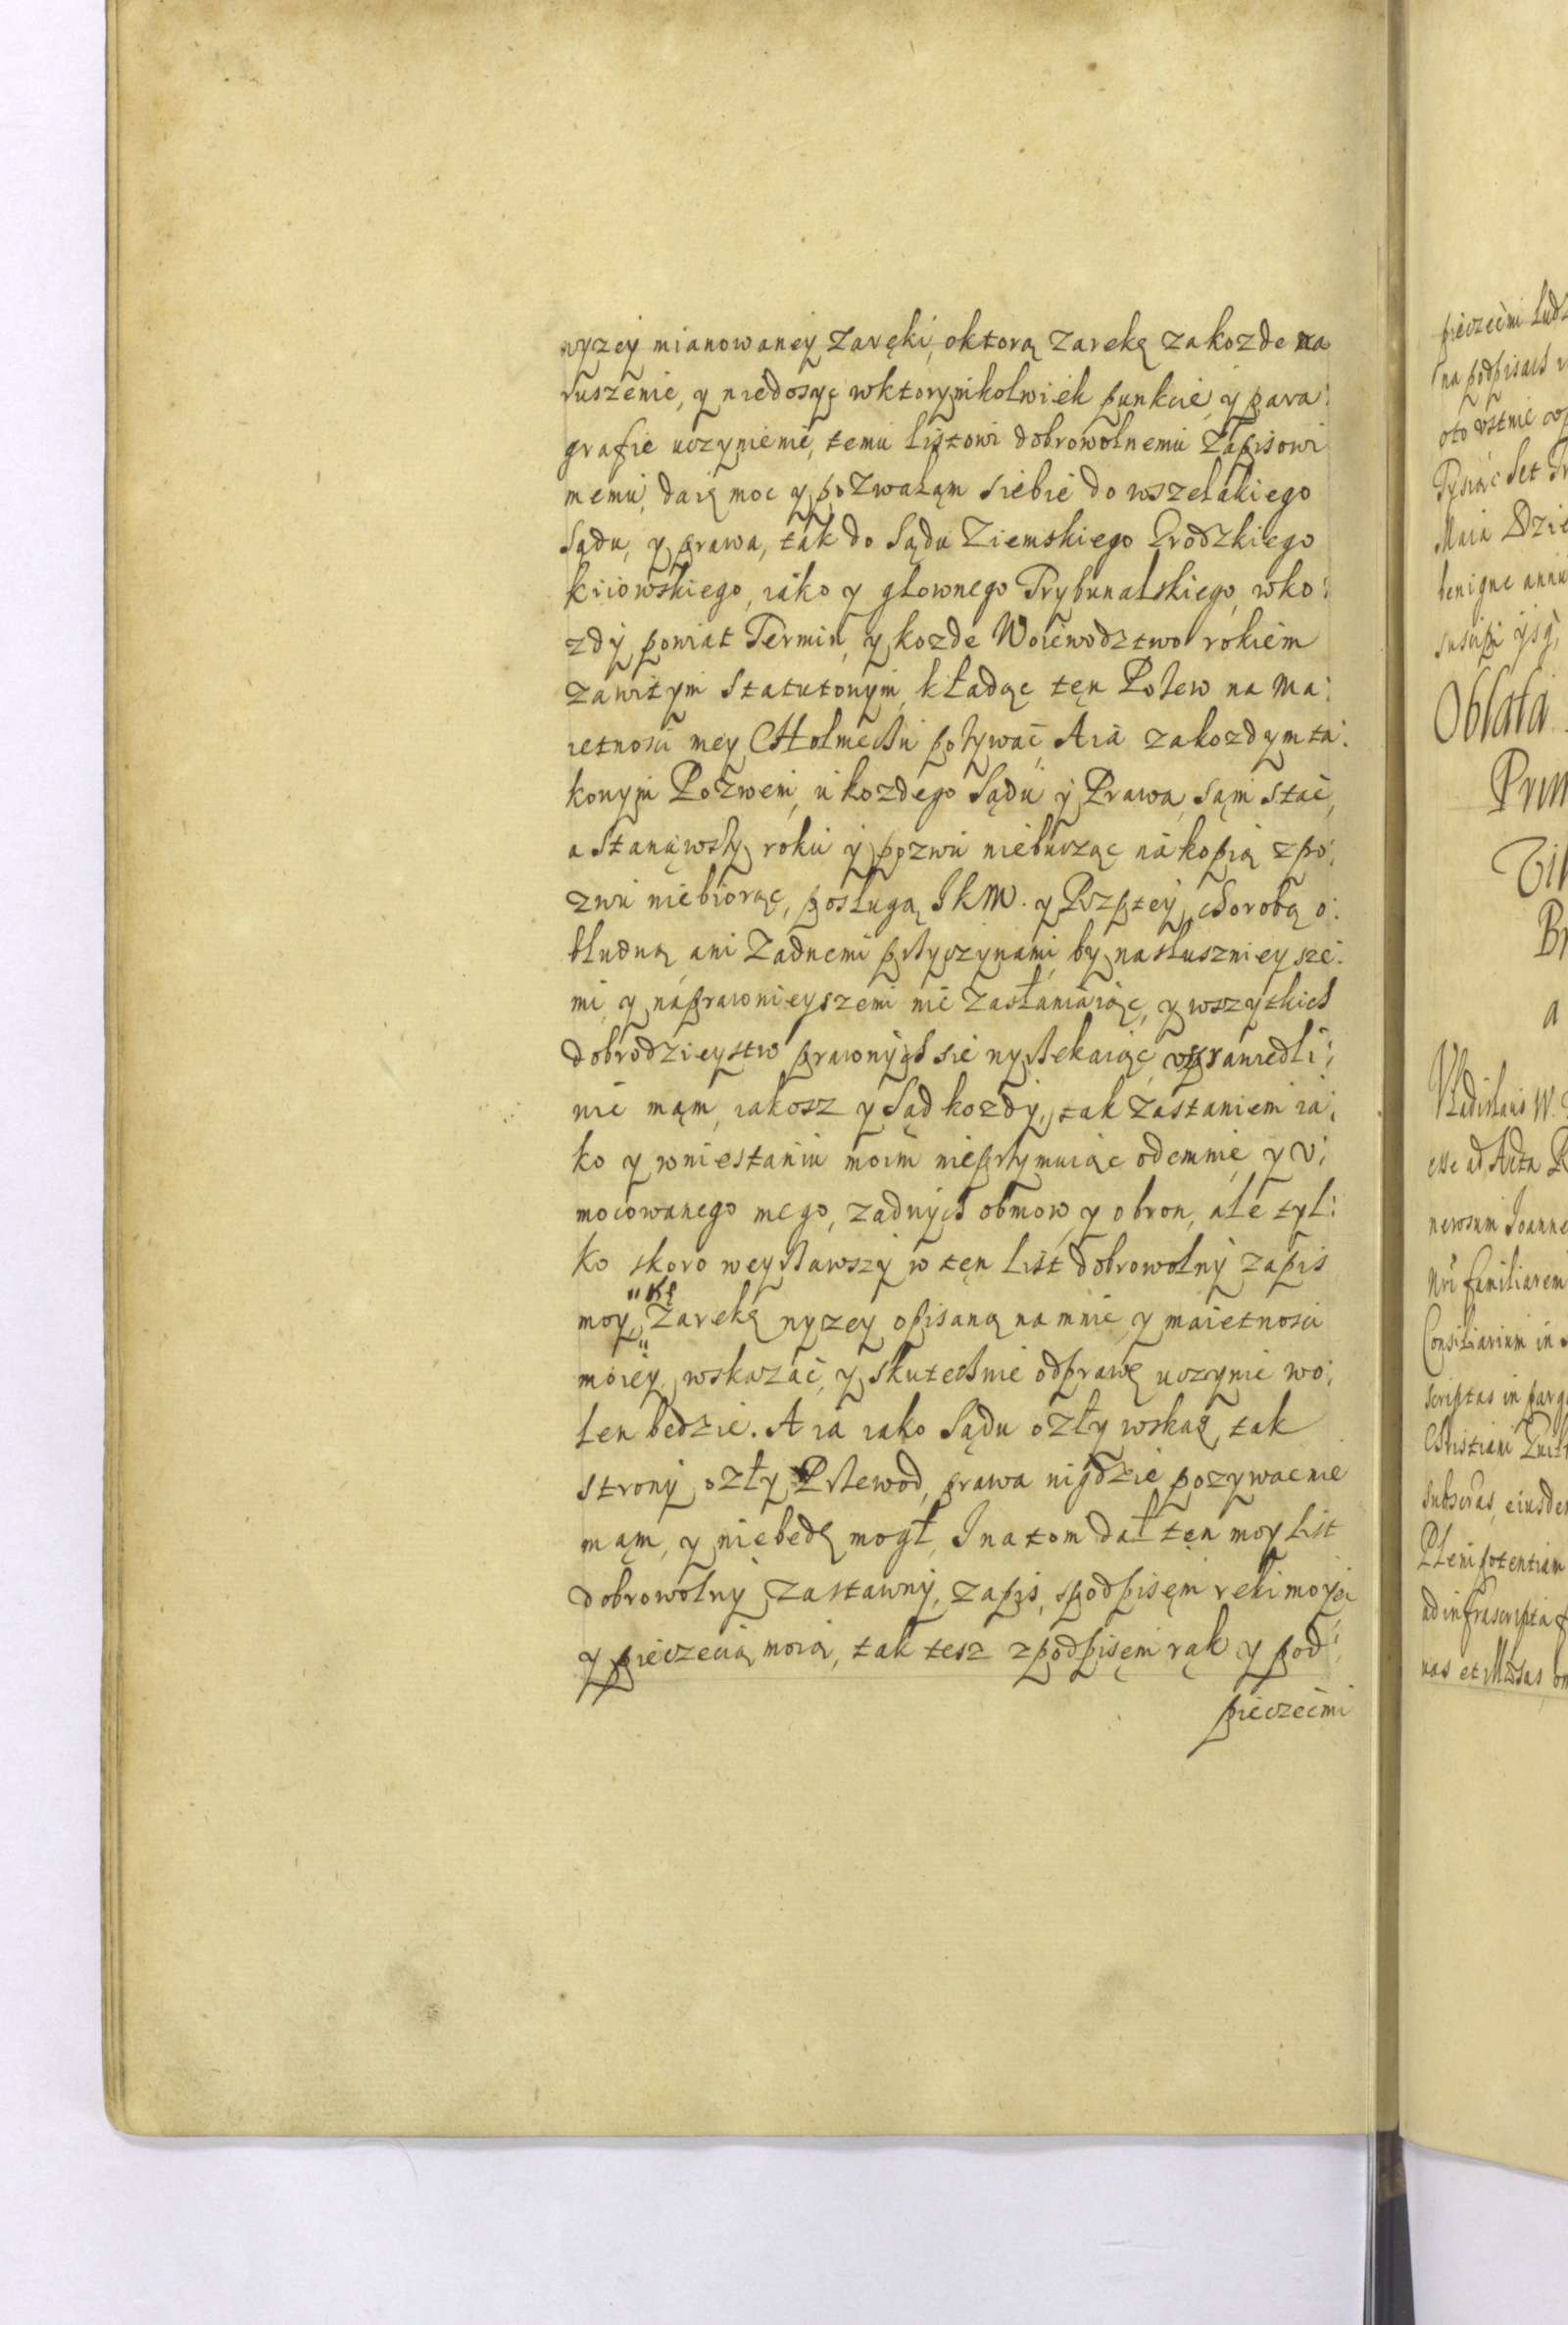 wyzey mianowaney zaręki, oktorą zarekę zakozde na
ruszenie, y niedosyc wktorymkolwiek punkcie, y para:
grafie uczynienie, temu listowi dobrowolnemu Zapisowi
memu, daię moc y pozwalam siebie do wszelakiego
Sądu, y prawa, tak do Sądu Ziemskiego Grodzkiego
kiiowskiego, iako y głownego Trybunalskiego, wko:
zdy powiat Termin, y kozde Woiewodztwo rokiem
zawitym Statutonym, kładąc tęn Pozew na Ma:
ietnosci mey Holmeczu pozywać, A ia zakozdym ta:
konym Pozwem, u kozdego Sądu y Prawa, sąm stać,
a Stanąwszy roku y pozwu nieburząc na kopią zpo:
zwu niebiorąc, posługą JkM. y Rzptey, chorobą o:
błudną, ani Zadnemi przyczynami, by nasłuszniey sze:
mi, y naprawnieyszemi nie Zasłaniaiąc, y wszytkich
dobrodzieystw prawnych sie wyrzekaiąc usprawiedli:
nie mąm, iakosz y Sąd kozdy, tak Zastaniem ia:
ko y wniestaniu moim nieprzymuiąc odemnie, y v:
mocowanego mego, zadnych obmow, y obron, ale tyl:
ko skoro weyrzawszy w tęn List dobrowolny zapis
moy, Zarekę wyzey opisaną na mnie, y maietnosci
moiey, wskazać, y skutecznie odprawę uczynic wo:
len bedzie. A ia iako Sądu ozły wskaz, tak
strony ozły Przewod, prawa nigdzie pozywac nie
mąm, y niebedę mogł, I na tom dał tęn moy List
dobrowolny zastawny, zapis, spodpisęm reki moyei
y pieczecią moią, tak tesz zpodpisęm rąk y pod
pieczećmi

pieczećmi
na podpisach
oto ustnie
Tysiąc set
Maia
benigne
suscipi
Oblata
a
Vladislaus W.
esse ad Acta
familiarem
Consiliarium in
scriptas in
Christiani
eiusdem
Plenipotentiam
ad infrascripta